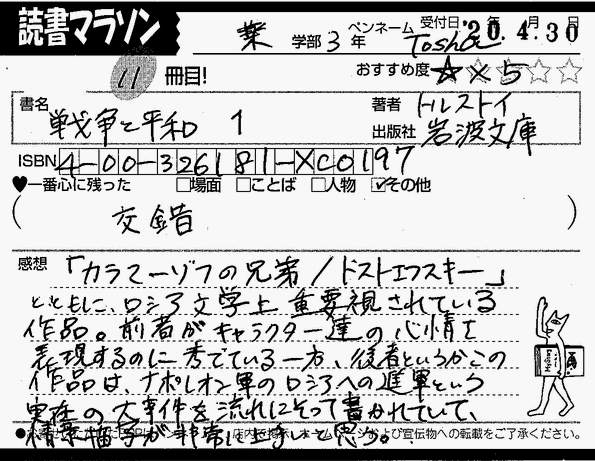 読書マラソン
薬 学部 3 年
ペンネーム Tosho
受付日 '20年 4月 30日
11 冊目!
おすすめ度 ☆×5
書名 戦争と平和 1
著者 トルストイ
出版社 岩波文庫
ISBN 4-00-326181-XC0197
♥一番心に残った □場面 □ことば □人物 ☑その他
( 交錯 )
感想 「カラマーゾフの兄弟/ドストエフスキー」
とともに、ロシア文学上 重要視されている
作品。前者がキャラクター達の心情を
表現するのに秀でている一方、後者というかこの
作品は、ナポレオン軍のロシアへの進軍という
実在の大事件を流れにそって書かれていて、
情景描写が非常に上手いと思う。
店内で掲示、ホーム および宣伝物への転載をご了承ください。